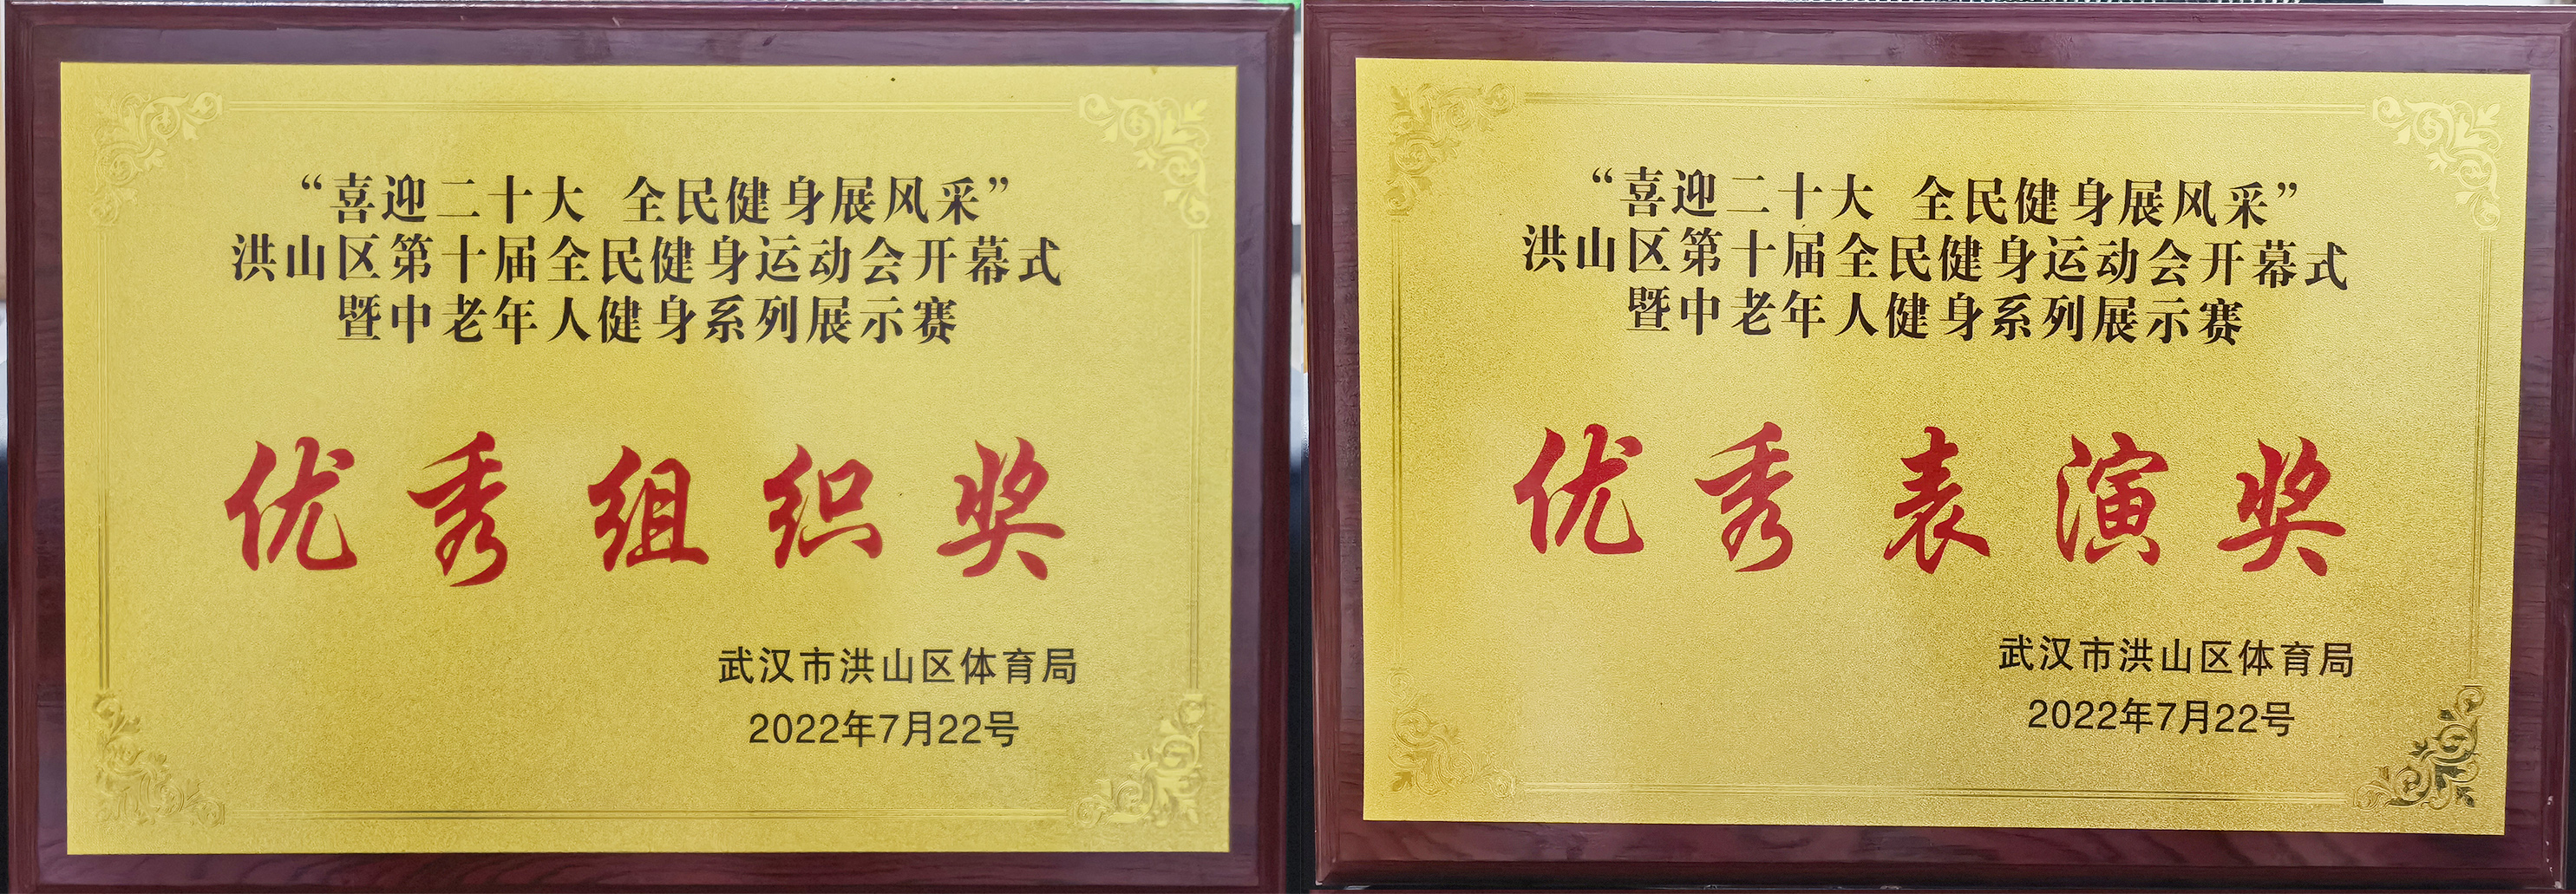 “喜迎二十大 全民健身展风采”
洪山区第十届全民健身运动会开幕式
暨中老年人健身系列展示赛
优秀组织奖
武汉市洪山区体育局
2022年7月22号
“喜迎二十大 全民健身展风采”
洪山区第十届全民健身运动会开幕式
暨中老年人健身系列展示赛
优秀表演奖
武汉市洪山区体育局
2022年7月22号